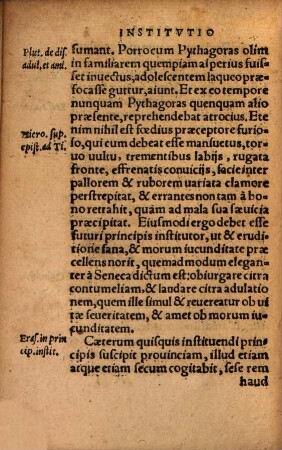 INSTITVTIO
Plut. de dis.
adul. et ami.
sumant. Porrocum Pythagoras olim
in familiarem quempiam asperius fuis
set inuectus, adolescentem laqueo præ
focasse guttur, aiunt. Et ex eo tempore
nunquam Pythagoras quenquam alio
præsente, reprehendebat atrocius. Et e
Hiero. sup.
epist. ad Ti.
nim nihil est fœdius præceptore furio
so, qui cum debeat esse mansuetus, tor
uo uultu, trementibus labijs, rugata
fronte, effrenatis conuicijs, facie inter
pallorem & ruborem uariata clamore
perstrepitat, & errantes non tam à bo
no retrahit, quàm ad mala sua sæuicia
præcipitat. Eiusmodi ergo debet esse
futuri principis institutor, ut & erudi
tione sana, & morum iucunditate præ
cellens norit, quemadmodum elegan
ter à Seneca dictum est: obiurgare citra
contumeliam, & laudare citra adulatio
nem, quem ille simul & reuereatur ob ui
tæ seueritatem, & amet ob morum iu
cunditatem.
Eras. in prin
cip. instit.
Cæterum quisquis instituendi prin
cipis suscipit prouinciam, illud etiam
atque etiam secum cogitabit, sese rem
haud